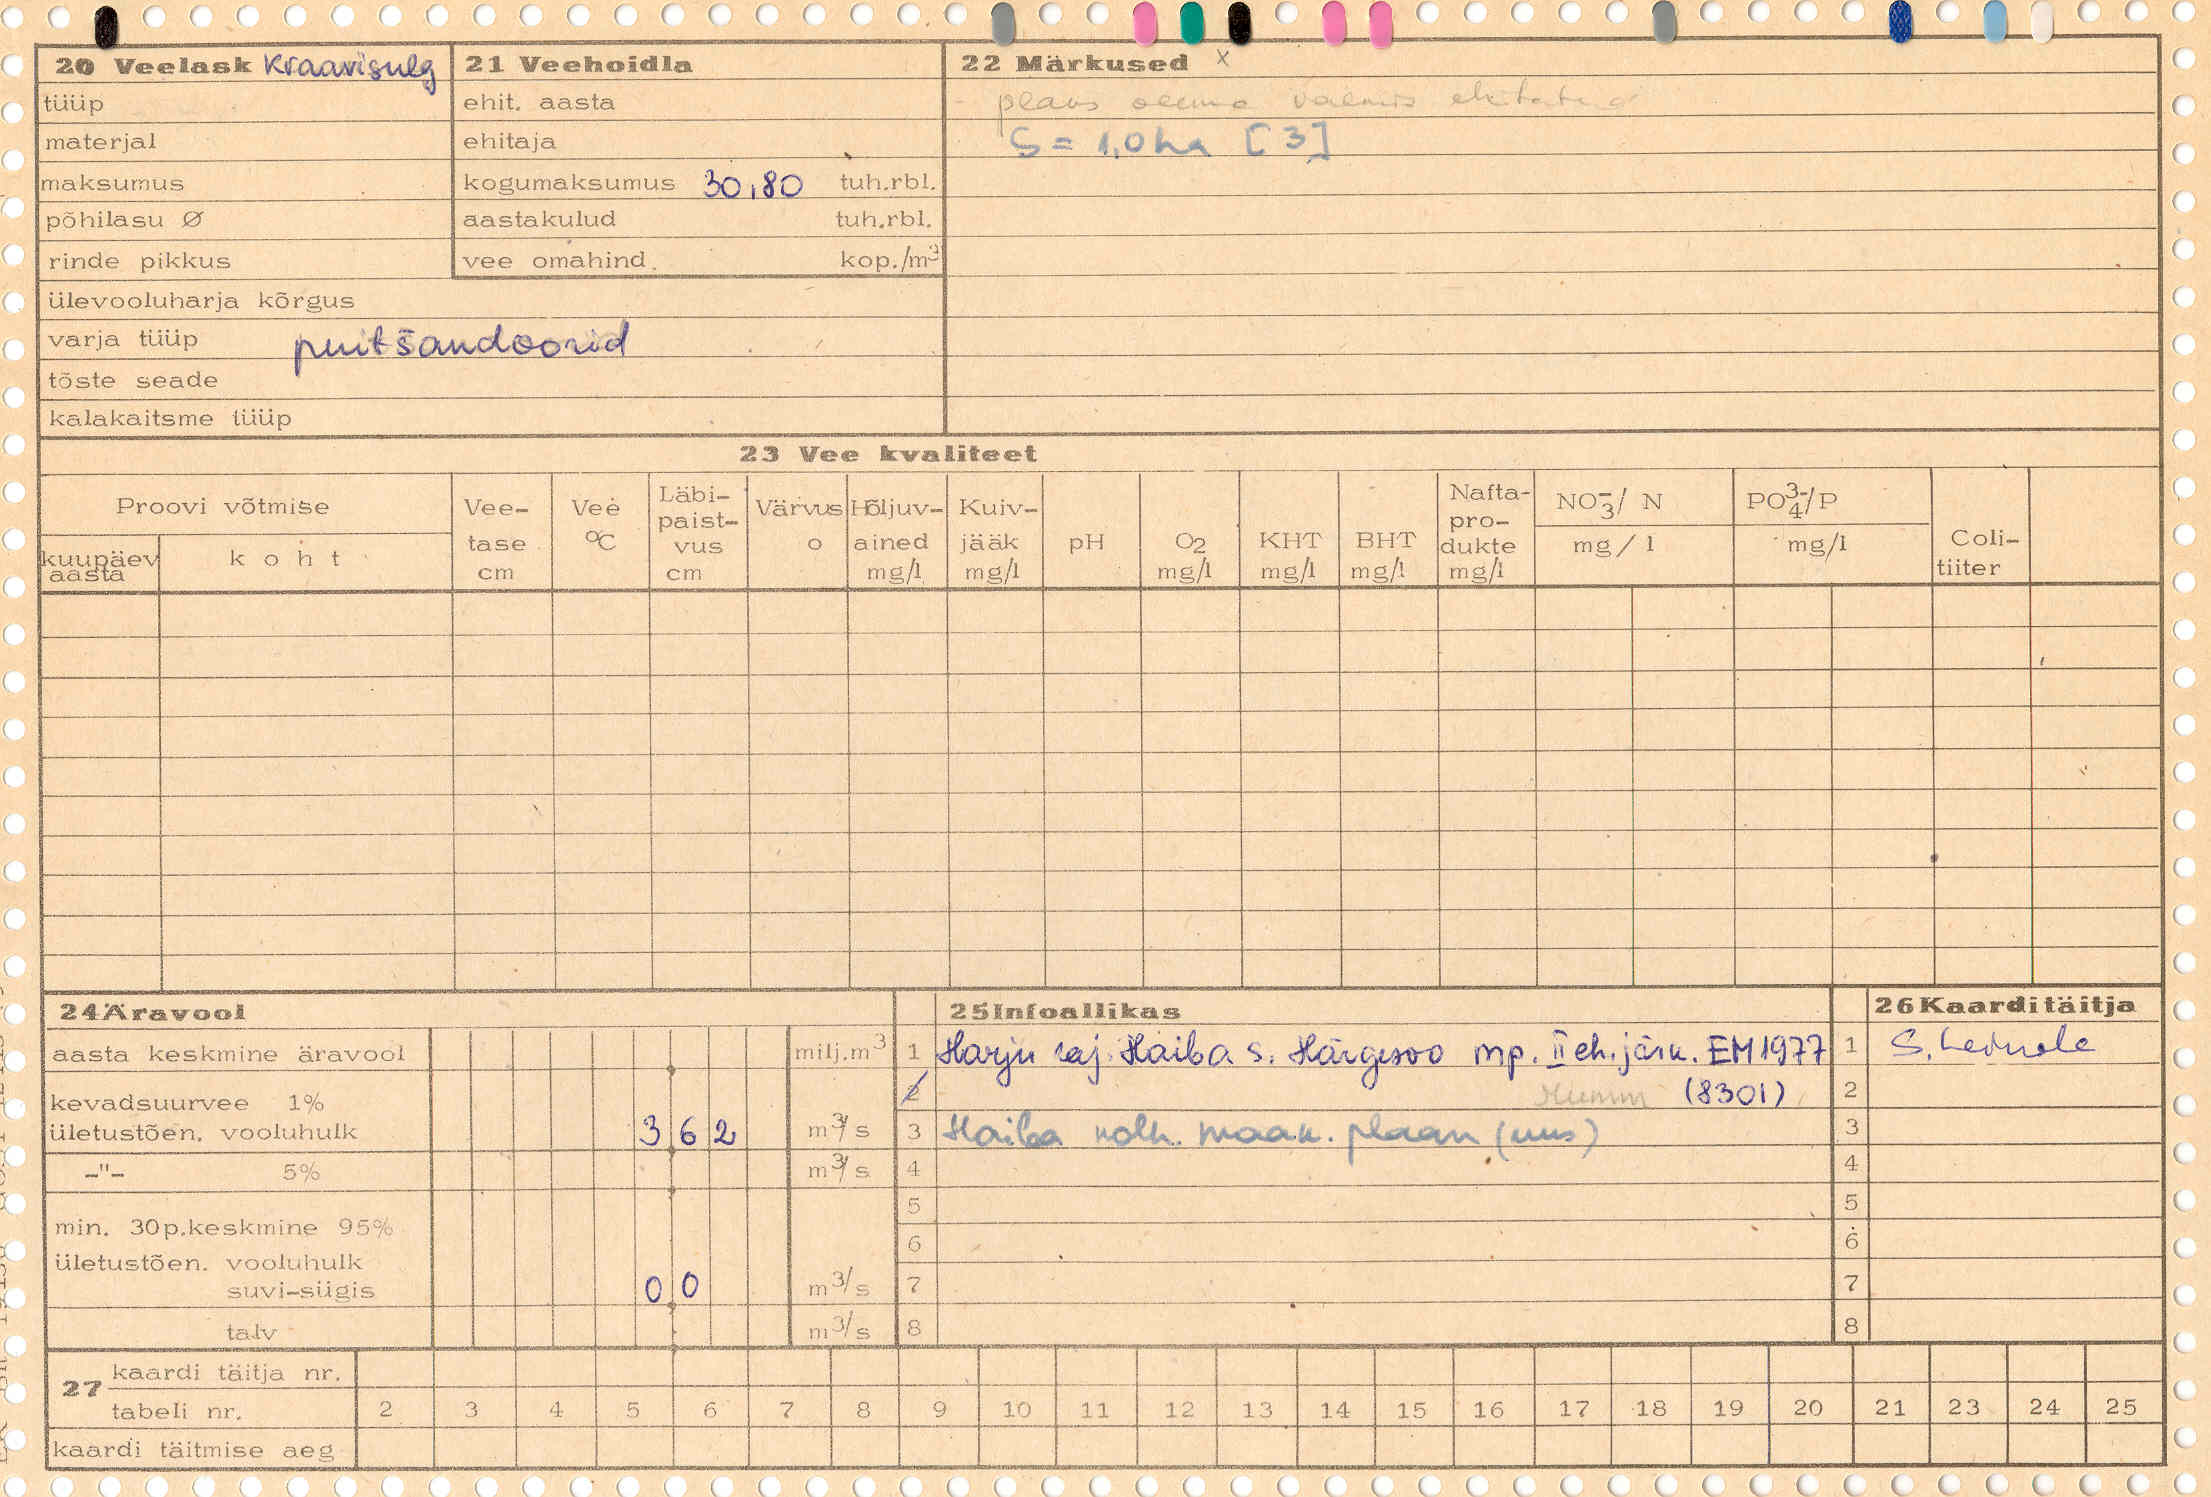 20 Veelask Kraavisulg
tüüp
materjal
maksumus
põhilasu Ø
rinde pikkus
ülevooluharja kõrgus
varja tüüp puitšandoorid
tõste seade
kalakaitsme tüüp
21 Veehoidla
ehit. aasta
ehitaja
kogumaksumus 30,80 tuh.rbl.
aastakulud tuh.rbl.
vee omahind kop./m3
22 Märkused x
plaus olema valmis ehitatud
S = 1,0 ha [3]
23 Vee kvaliteet
Proovi võtmise
kuupäev aasta
koht
Vee-tase cm
Vee °C
Läbi-paist-vus cm
Värvus o
Hõljuv-ained mg/l
Kuiv-jääk mg/l
pH
O2 mg/l
KHT mg/l
BHT mg/l
Nafta-pro-dukte mg/l
NO3-/ N mg/l
PO4 3-/P mg/l
Coli-tiiter
24 Äravool
aasta keskmine äravool milj.m3
kevadsuurvee 1%
ületustõen. vooluhulk 3 6 2 m3/s
-"- 5% m3/s
min. 30p.keskmine 95%
ületustõen. vooluhulk
suvi-sügis 0 0 m3/s
talv m3/s
25 Infoallikas
1 Harju raj. Haiba s. Härgesoo mp. II eh.järk. EM 1977
2 (8301)
3 Haiba kolh. maak. plaan (uus)
4
5
6
7
8
26 Kaarditäitja
1 S.
2
3
4
5
6
7
8
27 kaardi täitja nr.
tabeli nr. 2 3 4 5 6 7 8 9 10 11 12 13 14 15 16 17 18 19 20 21 23 24 25
kaardi täitmise aeg